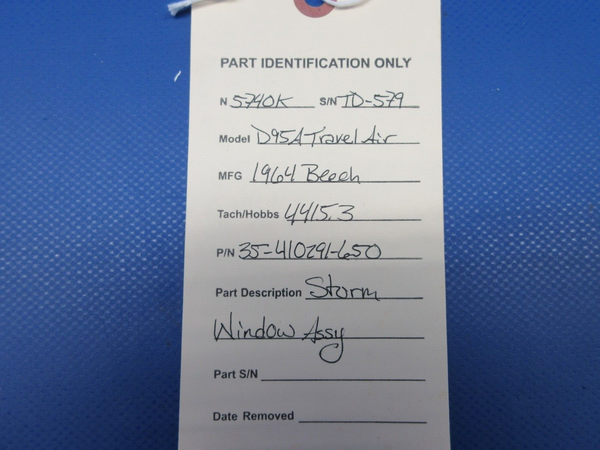 PART IDENTIFICATION ONLY
N 5740K S/N TD-579
Model D95A Travel Air
MFG 1964 Beech
Tach/Hobbs 4415.3
P/N 35-410291-650
Part Description Storm
Window Assy
Part S/N
Date Removed